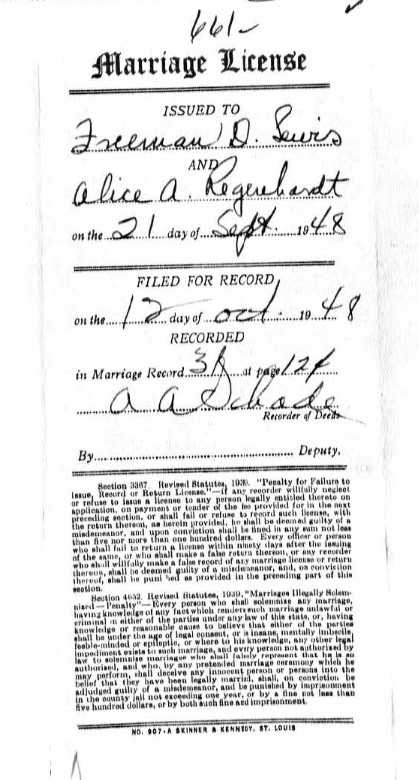 661-
Marriage License
ISSUED TO
Freeman D. Lewis
AND
Alice A. Regenhardt
on the 21 day of Sept. 1948
FILED FOR RECORD
on the 12 day of Oct. 1948
RECORDED
in Marriage Record at page 124
A A Schade
Recorder of Deeds
By Deputy.
Section 3367. Revised Statutes, 1939. "Penalty for Failure to
Issue, Record or Return License."—If any recorder willfully neglect
or refuse to issue a license to any person legally entitled thereto on
application, on payment or tender of the fee provided for in the next
preceding section, or shall fail or refuse to record such license, with
the return thereon, as herein provided, he shall be deemed guilty of a
misdemeanor, and upon conviction shall be fined in any sum not less
than five nor more than one hundred dollars. Every officer or person
who shall fail to return a license within ninety days after the issuing
of the same, or who shall make a false return thereon, or any recorder
who shall willfully make a false record of any marriage license or return
thereon, shall be deemed guilty of a misdemeanor, and, on conviction
thereof, shall be punished as provided in the preceding part of this
section.
Section 4652. Revised Statutes, 1939, "Marriages Illegally Solem-
nized—Penalty"—Every person who shall solemnize any marriage,
having knowledge of any fact which renders such marriage unlawful or
criminal in either of the parties under any law of this state, or having
knowledge or reasonable cause to believe that either of the parties
shall be under the age of legal consent, or is insane, mentally imbecile,
feeble-minded or epileptic, or where to his knowledge, any other legal
impediment exists to such marriage, and every person not authorized by
law to solemnize marriages who shall falsely represent that he is so
authorized, and who, by any pretended marriage ceremony which he
may perform, shall deceive any innocent person or persons into the
belief that they have been legally married, shall, on conviction be
adjudged guilty of a misdemeanor, and be punished by imprisonment
in the county jail not exceeding one year, or by a fine not less than
five hundred dollars, or by both such fine and imprisonment.
NO. 907-A SKINNER & KENNEDY, ST. LOUIS